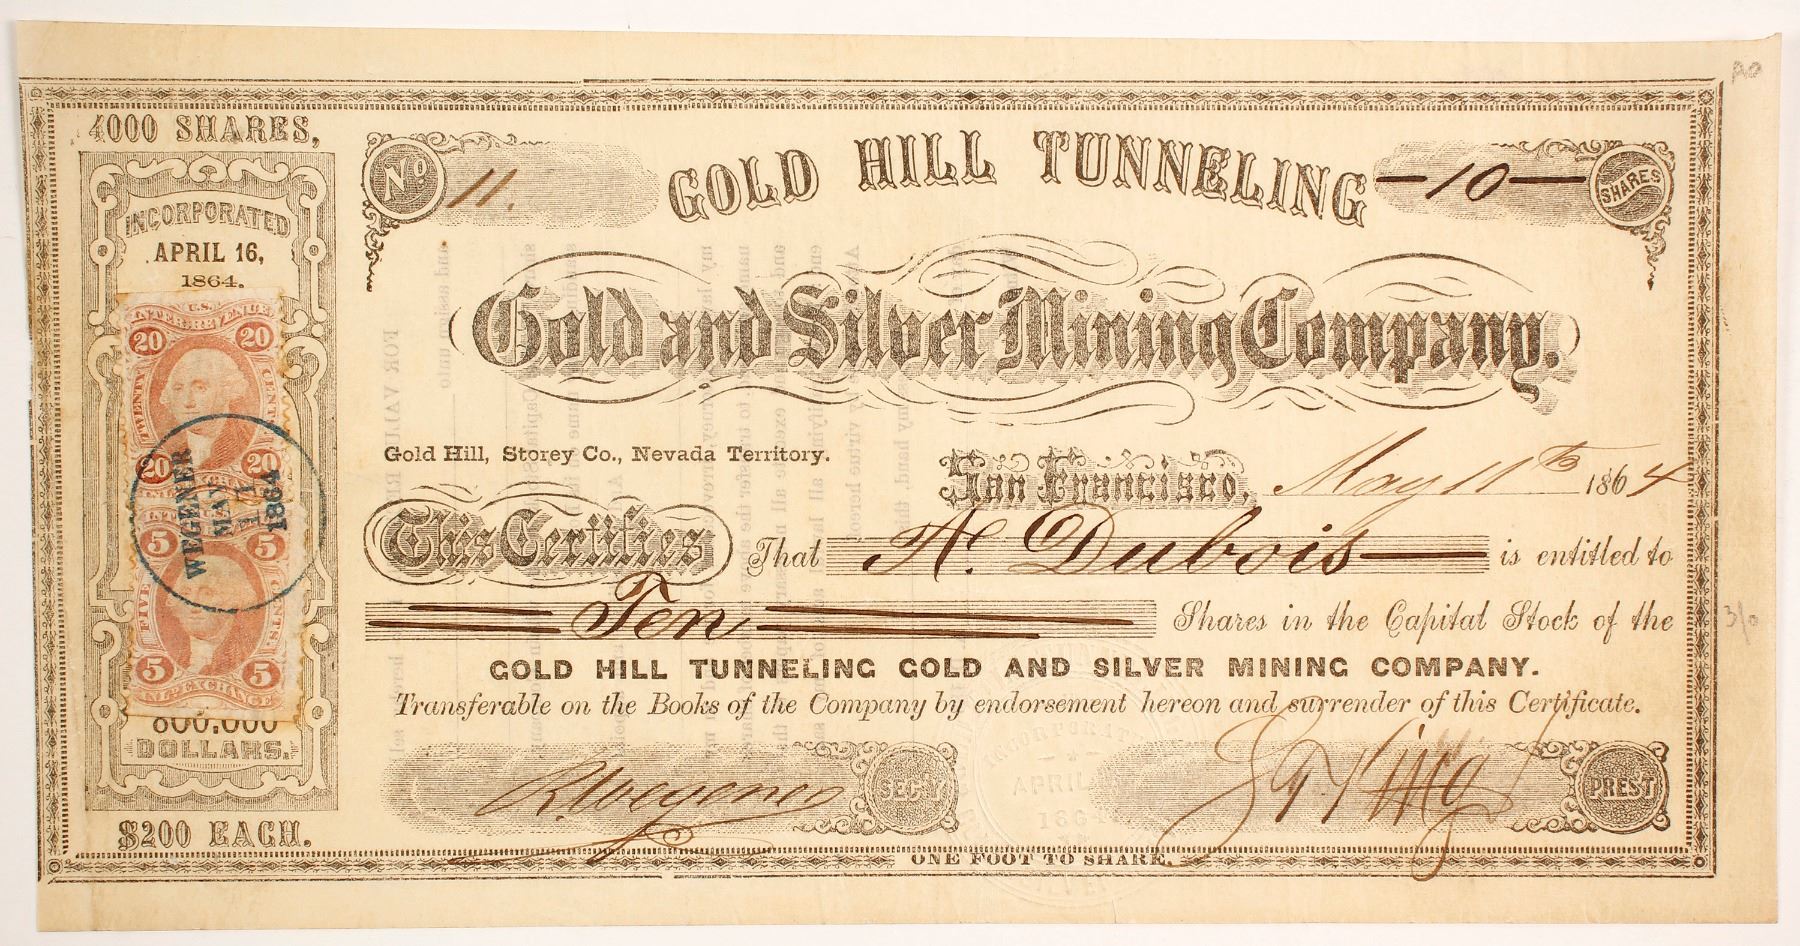 4000 SHARES,
INCORPORATED
APRIL 16,
1864.
U.S.
INTER. REVENUE
20 20
TWENTY CENTS
20 20
5 5
FIVE CENTS
5 5
INL. EXCHANGE
WEGENER
MAY
11
1864
800,000
DOLLARS.
$200 EACH.
No 11.
GOLD HILL TUNNELING
10 SHARES
Gold and Silver Mining Company.
Gold Hill, Storey Co., Nevada Territory.
San Francisco, May 11th 1864
This Certifies That A. Dubois is entitled to
Ten Shares in the Capital Stock of the
GOLD HILL TUNNELING GOLD AND SILVER MINING COMPANY.
Transferable on the Books of the Company by endorsement hereon and surrender of this Certificate.
R. Wegener SECY
King PREST
INCORPORATED
APRIL
1864
ONE FOOT TO SHARE.